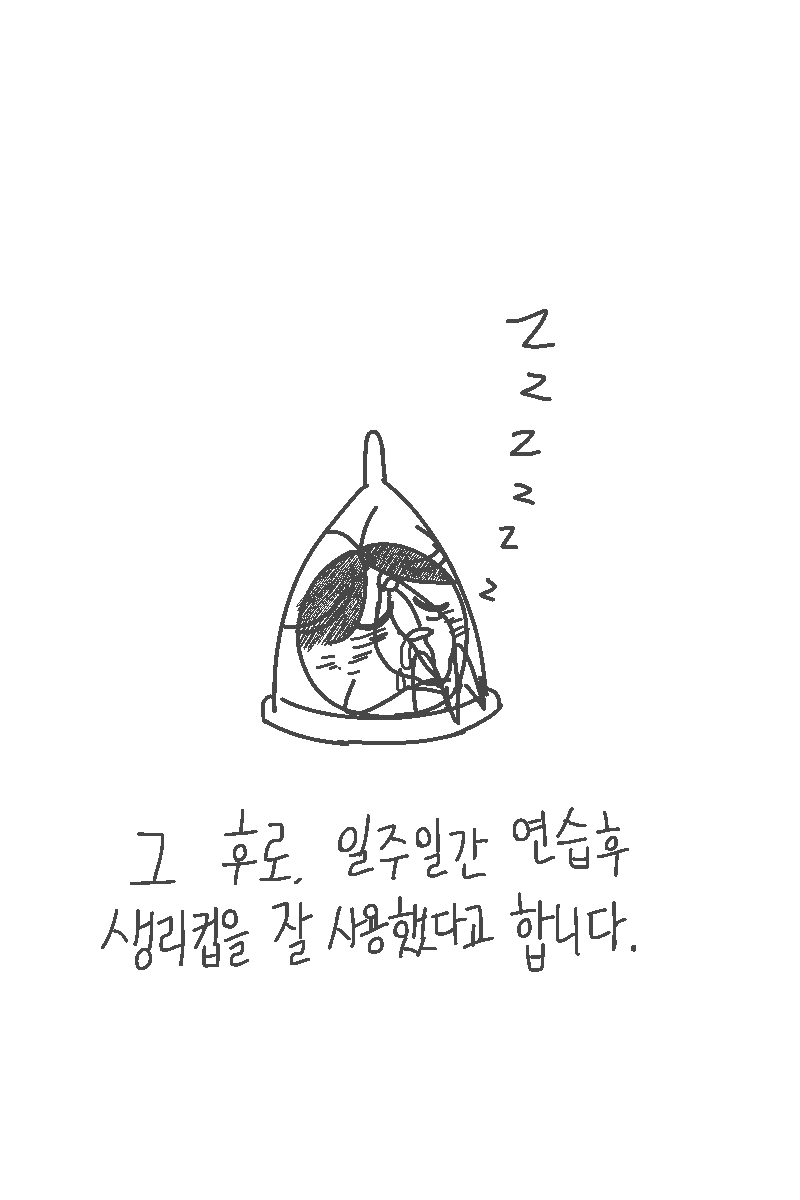 Z
Z
Z
Z
Z
Z
그 후로, 일주일간 연습후
생리컵을 잘 사용했다고 합니다.